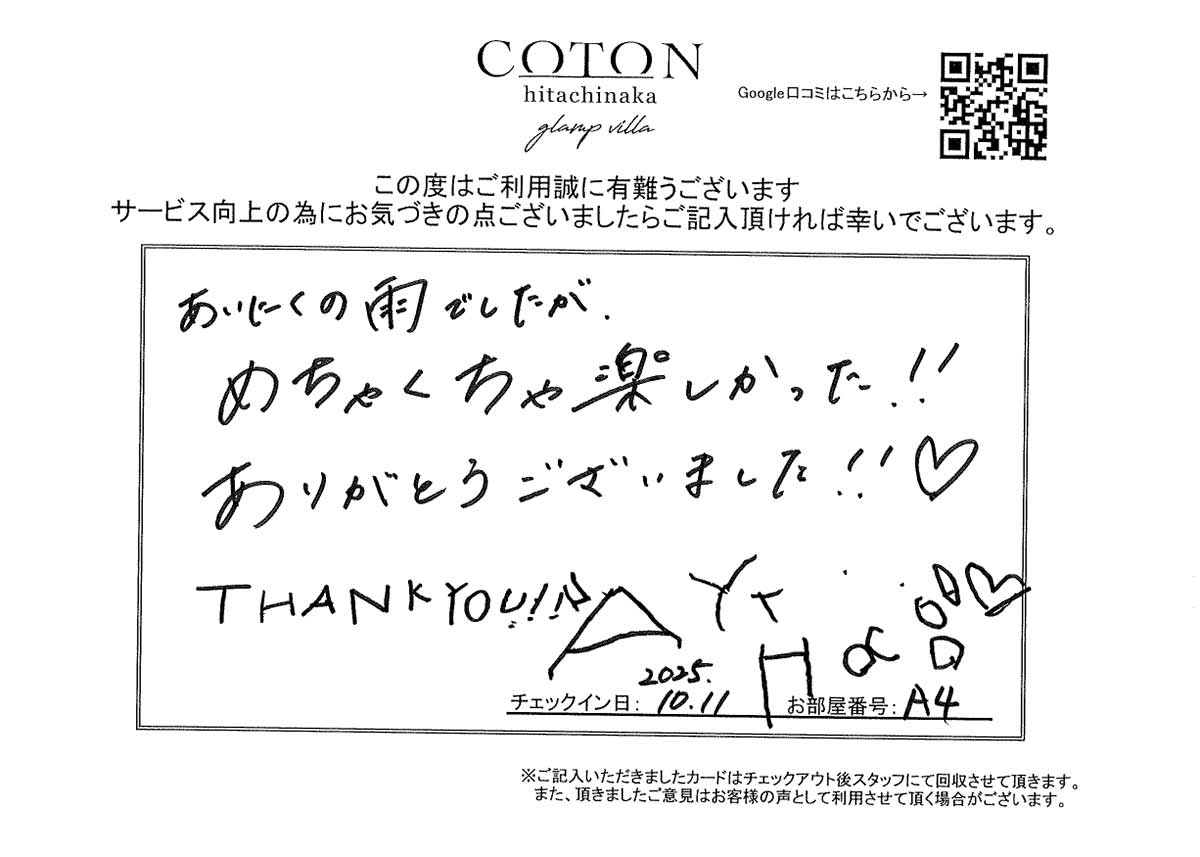 COTON
hitachinaka
glamp villa
Google口コミはこちらから→
この度はご利用誠に有難うございます
サービス向上の為にお気づきの点ございましたらご記入頂ければ幸いでございます。
あいにくの雨でしたが.
めちゃくちゃ楽しかった!!
ありがとうございました!!♡
THANKYOU!!!
チェックイン日: 2025. 10.11 お部屋番号: A4
※ご記入いただきましたカードはチェックアウト後スタッフにて回収させて頂きます。
また、頂きましたご意見はお客様の声として利用させて頂く場合がございます。